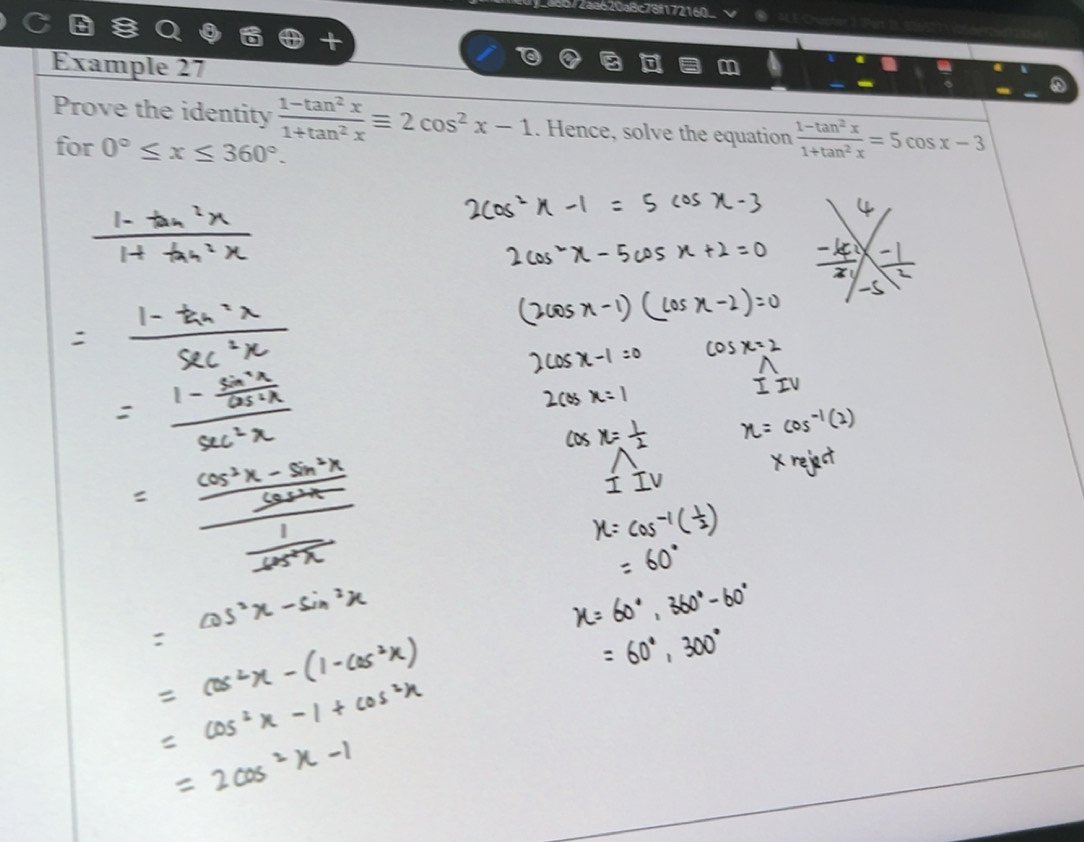 Example 27
Prove the identity (1−tan² x)/(1+tan² x) ≡ 2 cos² x − 1. Hence, solve the equation (1−tan² x)/(1+tan² x) = 5 cos x − 3
for 0° ≤ x ≤ 360°.
(1 - tan²x)/(1 + tan²x)
= (1 - tan²x)/(sec²x)
= (1 - sin²x/cos²x)/(sec²x)
= ((cos²x - sin²x)/cos²x)/(1/cos²x)
= cos²x - sin²x
= cos²x - (1-cos²x)
= cos²x - 1 + cos²x
= 2cos²x - 1
2cos²x - 1 = 5 cos x - 3
2cos²x - 5cos x + 2 = 0
(2cos x - 1)(cos x - 2) = 0
2cos x - 1 = 0
2cos x = 1
cos x = 1/2
I IV
x = cos⁻¹(1/2)
= 60°
x = 60°, 360° - 60°
= 60°, 300°
cos x = 2
I IV
x = cos⁻¹(2)
x reject
4
-1
2
-5